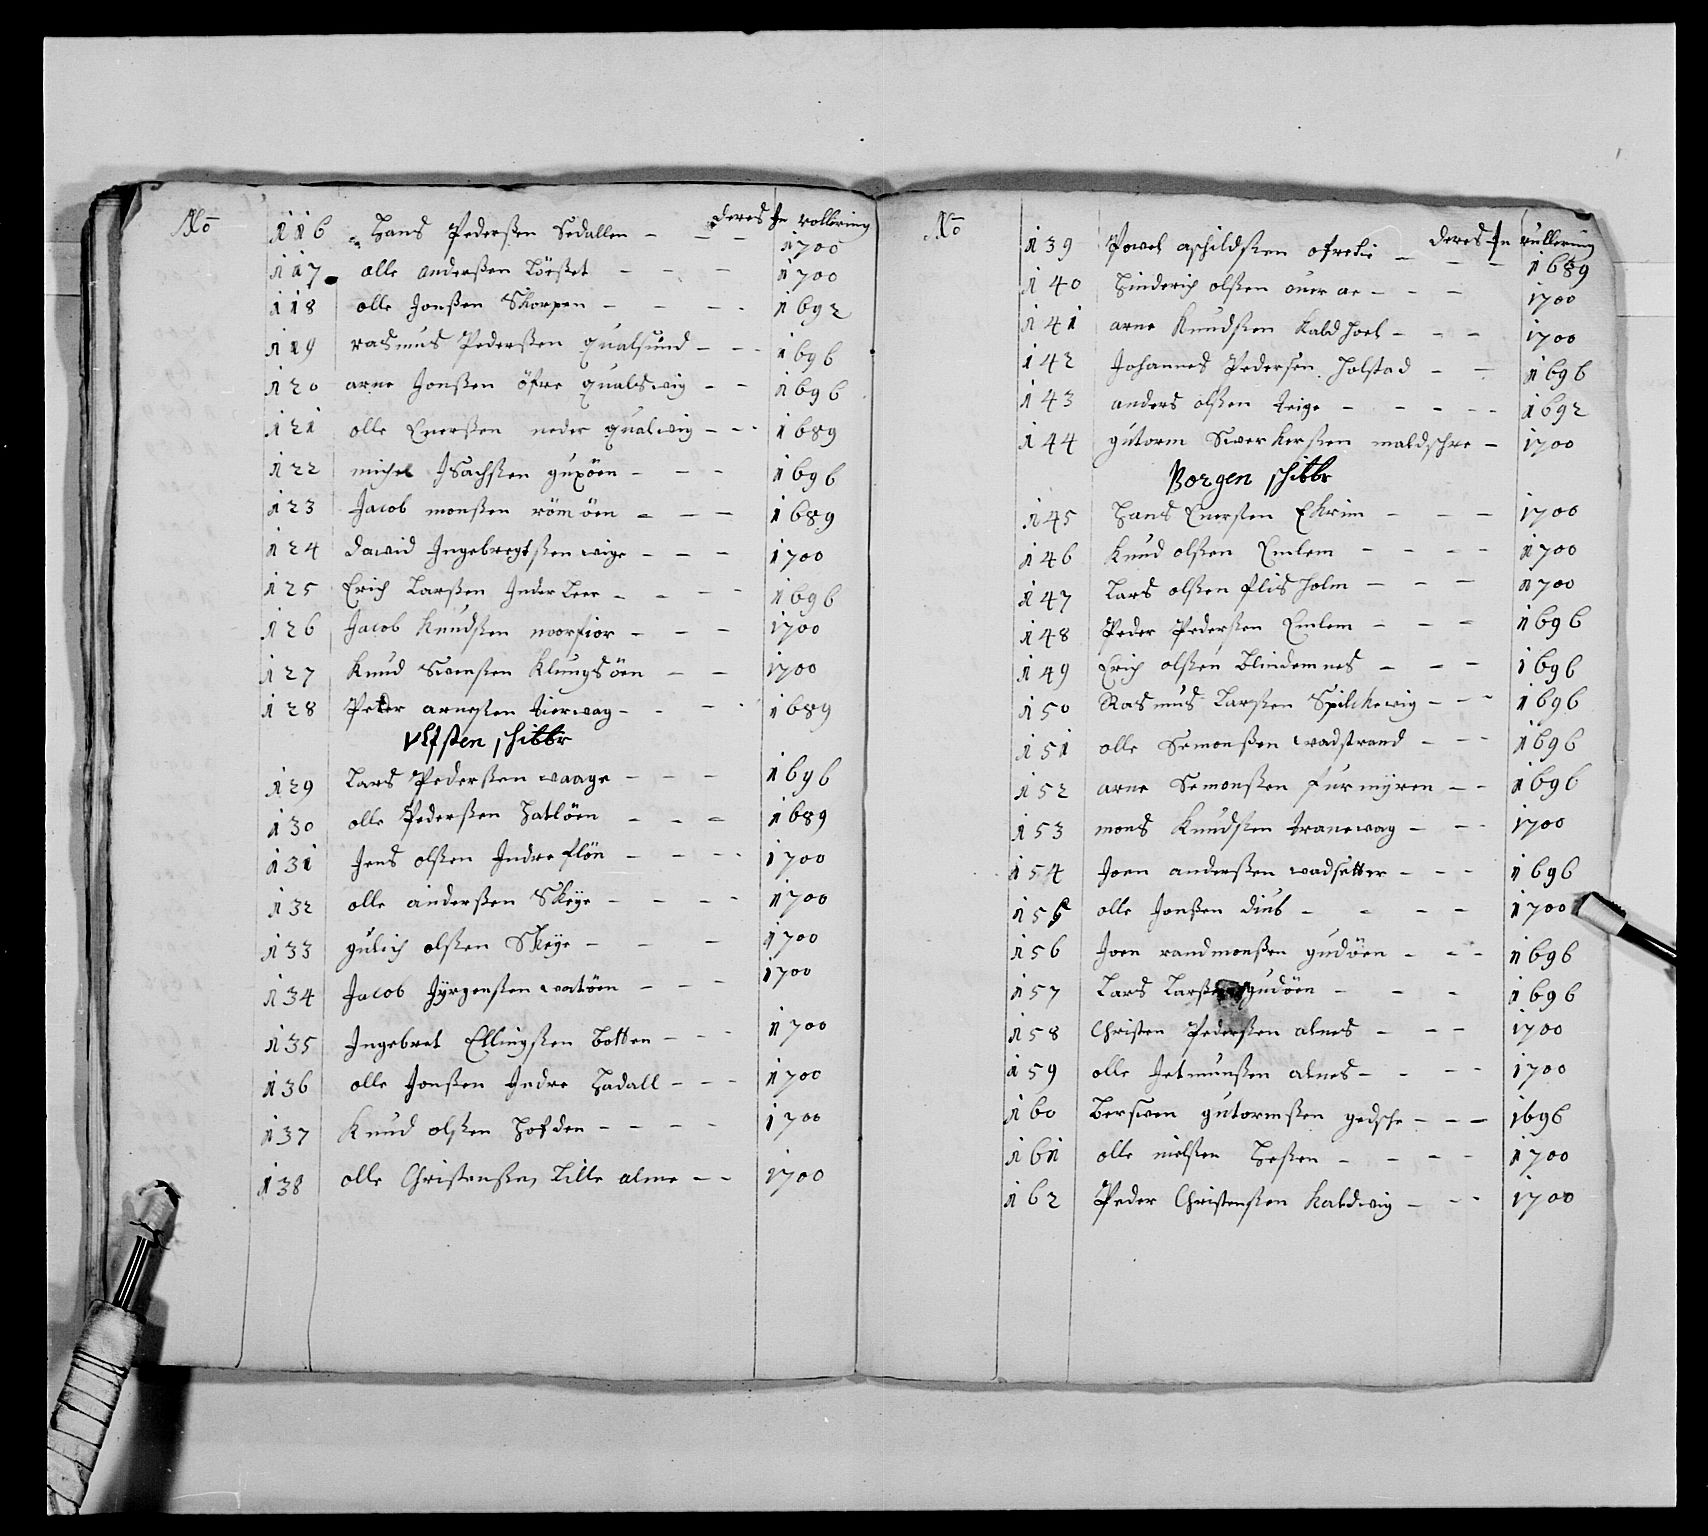 No
deres In rollering
116 Hans Pederßen Sedallen - - - 1700
117 olle anderßen Lörßet - - - 1700
118 olle Jonßen Skorpen - - - - 1692
119 rasmus Pederßen qualsund - - - 1696
120 arne Jonßen öfre qualswig - - 1696
121 olle Enerßen neder qualwig - - - 1689
122 michel Isachßen guxöen - - - 1696
123 Jacob monßen römöen - - - 1689
124 dawid Ingebregtßen wige - - - 1700
125 Erich Larßen Inder Leer - - - - 1696
126 Jacob Knudßen moorfior - - - 1700
127 Knud Swenßen Klungsöen - - 1700
128 Peder arneßen tierwag - - - - 1689
Vlfsten schibbr
129 Lars Pederßen waage - - - 1696
130 olle Pederßen Hatlöen - - - 1689
131 Jens olßen Indre flöu - - - - 1700
132 olle anderßen Skeye - - - - 1700
133 gulich olßen Skeye - - - 1700
134 Jacob Jyrgenßen watöen - - - 1700
135 Ingebret Ellingßen botten - - - 1700
136 olle Jonßen Indre Hadall - - - 1700
137 Knud olßen Hofden - - - - 1700
138 olle Christenßen Lille alme - - 1700
No
deres In rullering
139 Powel aschildßen ofrelie - - - 1689
140 Hinderich olßen ouer ae - - - 1700
141 arne Knudßen Kald Hoel - - - 1700
142 Johannes Pedersen Holstad - - 1696
143 anders olßen teige - - - - - 1692
144 gutorm Swerkerßen maldschre - 1700
Borgen schibbr
145 Hans Enerßen Ekrim - - - 1700
146 Knud olßen Emlem - - - - 1700
147 Lars olßen flis Holm - - - 1700
148 Peder Pederßen Emlem - - - 1696
149 Erich olßen blindemnes - - - 1696
150 Rasmus Larßen Spilckewig - - - 1696
151 olle Semonßen wadstrand - - - 1696
152 arne Semonßen furmyren - - 1696
153 mons Knudßen tranewag - - - 1700
154 Joen anderßen wadsetter - - - 1696
155 olle Jonßen dieb - - - - 1700
156 Joen randmonßen gudöen - - - 1696
157 Lars Larßen gudöen - - - 1696
158 Christen Pederßen alnes - - - 1700
159 olle Jetmunßen alnes - - - - 1700
160 berswen gutormßen gedsche - - - 1696
161 olle nielßen Heßen - - - - 1700
162 Peder Christenßen Kaldwig - - - 1700